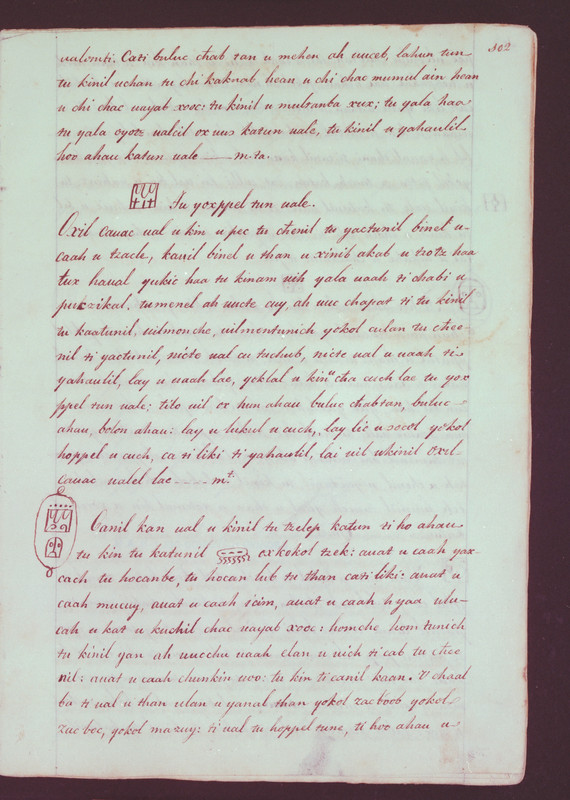 102
ualomti. Cati buluc chab tan u mehen ah uuceb, lahun tun
tu kinil uchan tu chi kaknab, hean u chi chac mumul ain hean
u chi chac uayab xooc: tu kinil u multanba xux; tu yala haa
tu yala oyotz ualcil ox uus katun uale, tu kinil u yahaulil
hoo ahau katun uale — m-ta.
Tu yoxppel tun uale.
Oxil cauac ual u kin u pec tu cħenil tu yactunil binel u-
caah u tzacle, kanil binel u than u xinib akab u tzotz haa
tux haual yukic haa tu kinam uih yala uaah ti chabi u
puczikal. tumenel ah uucte cuy, ah uuc chapat ti tu kinil
tu kaatunil, uilmonche, uilmontunich yokol cutan tu cheo-
nil ti yactunil, nicte ual cu tuchub, nicte ual u uaah ti-
yahaulil, lay u uaah lae, yoklal u kin cha cuch lae tu yox
ppel tun uale; tilo uil ox hun ahau buluc chabtan, buluc
ahau, bolon ahau: lay u lukul u cuch, lay lic u socol yokol
hoppel u cuch, ca ti liki ti yahaulil, lai uil ukinil oxil-
cauac ualel lae — mt.
Canil kan ual u kinil tu tzelep katun ti ho ahau
tu kin tu katunil ox kokol tzek: auat u caah yax-
cach tu hocanbe, tu hocan lub tu than cati liki: auat u
caah mucuy, auat u caah icim, auat u caah hyaa ulu-
cah u kat u kuchil chac uayab xooc: homche hom tunich
tu kinil yan ah uucchu uaah elan u uich ti cab tu chee
nil: auat u caah chunkin uoo: tu kin ti canil kaan. V chaal
ba ti ual u than ulan u yanal than yokol zacboob yokol
zac boc, yokol mazuy: ti ual tu hoppel tune, ti hoo ahau u